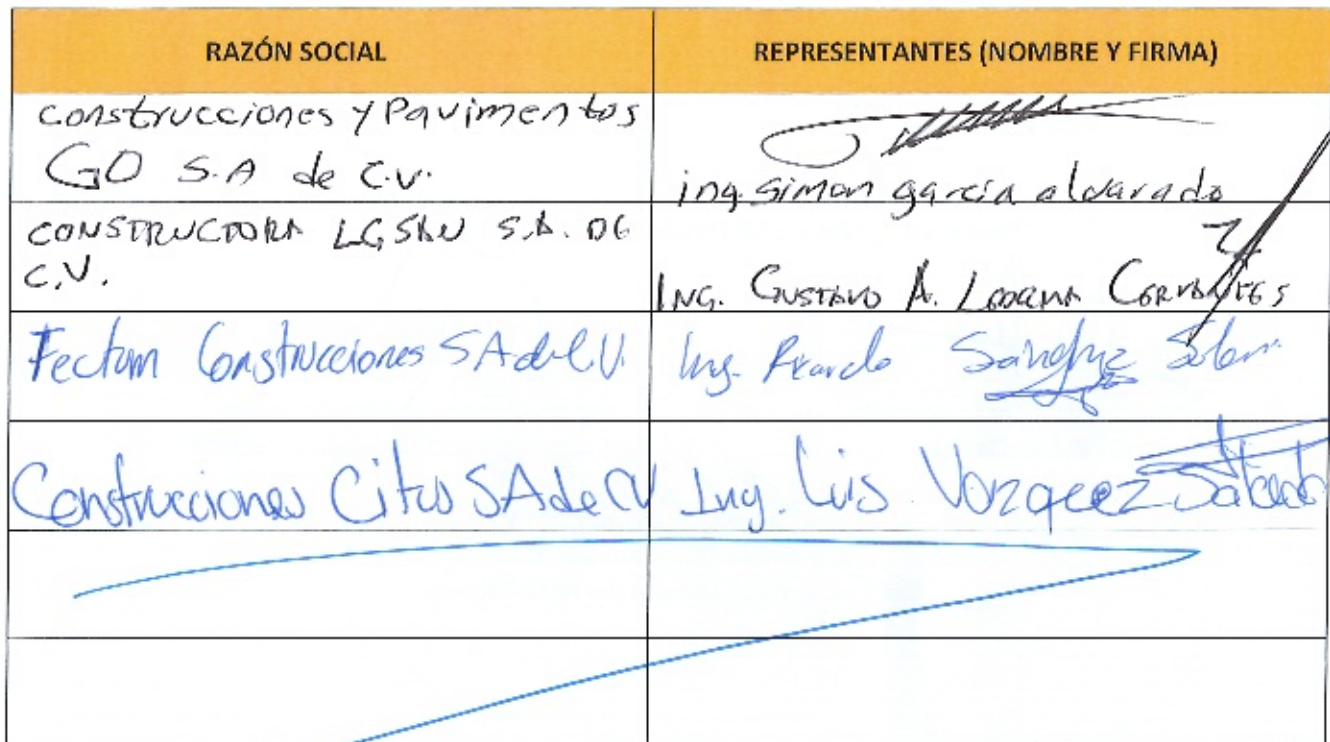 RAZÓN SOCIAL
REPRESENTANTES (NOMBRE Y FIRMA)
Construcciones y Pavimentos
GO S.A de C.V.
ing. simon garcia alvarado
CONSTRUCTORA LGSAN S.A. DE
C.V.
ING. GUSTAVO A. CERVANTES
Construcciones SA de C.V.
Ing. Sánchez
Construcciones Citus SA de CV
Ing. Luis Vazquez